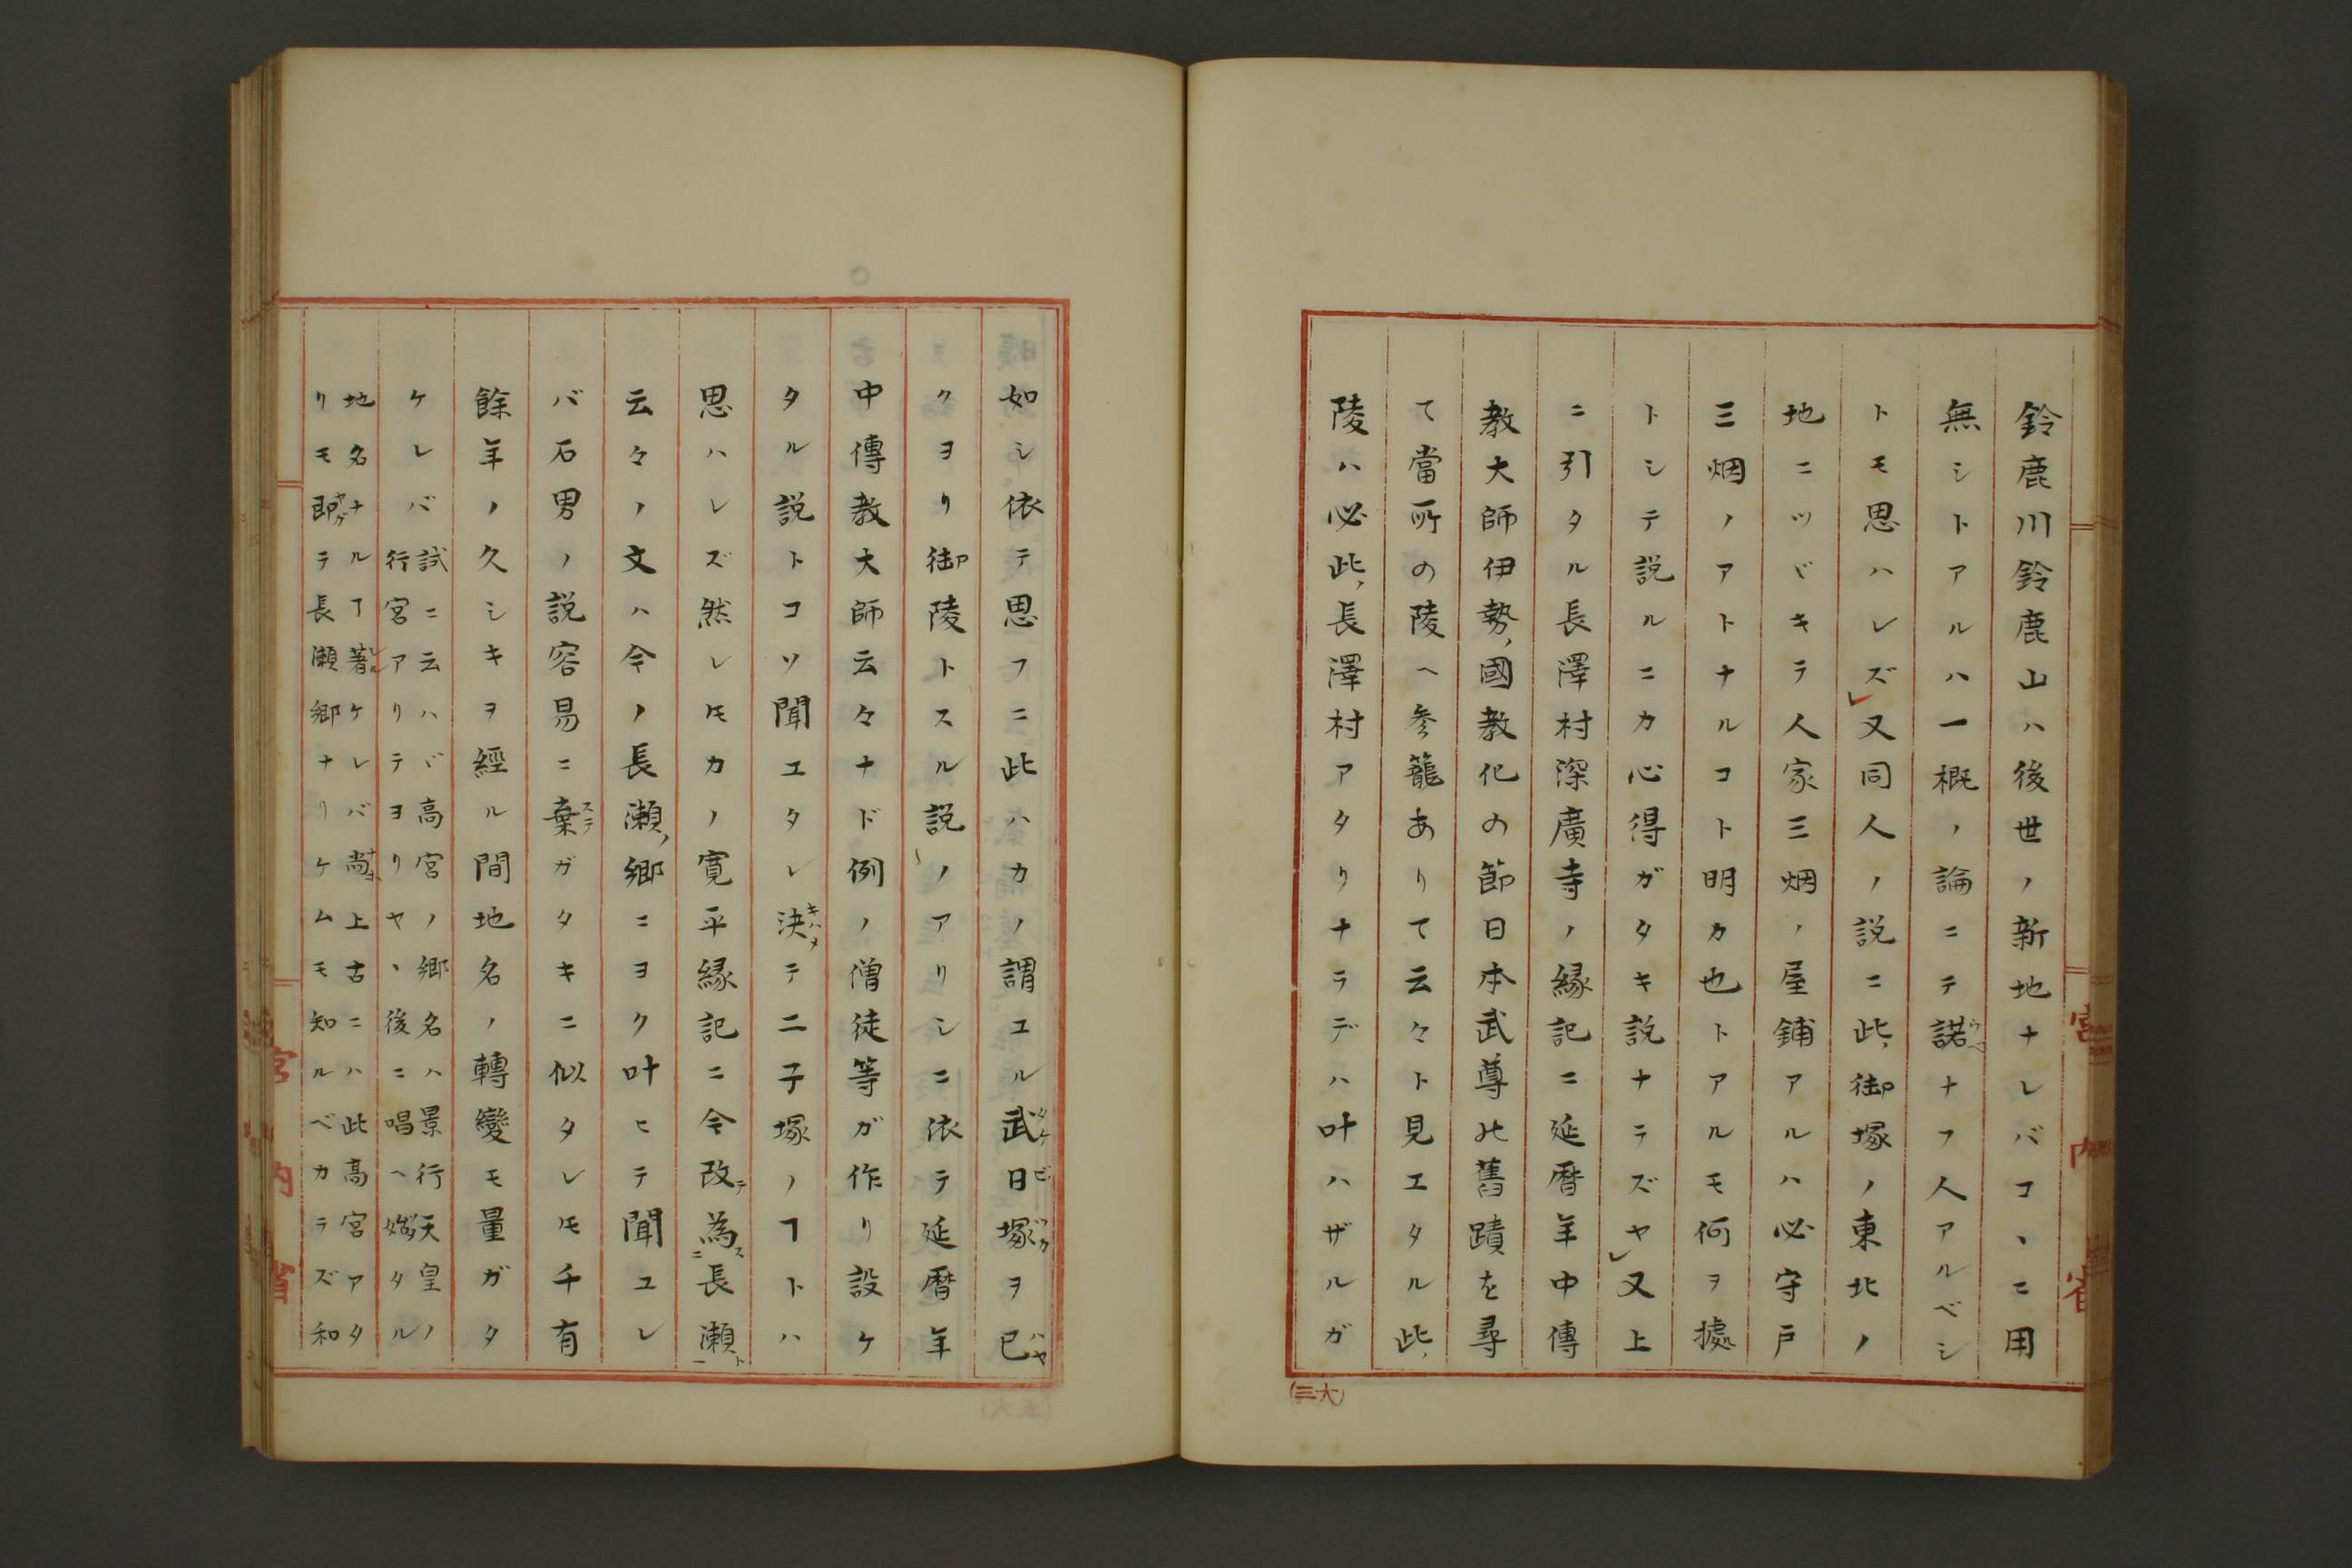 鈴鹿川鈴鹿山ハ後世ノ新地ナレバコヽニ用
無シトアルハ一概ノ論ニテ諾ナフ人アルベシ
トモ思ハレズ又同人ノ説ニ此御塚ノ東北ノ
地ニツヾキテ人家三烟ノ屋鋪アルハ必守戸
三烟ノアトナルコト明カ也トアルモ何ヲ據
トシテ説ルニカ心得ガタキ説ナラズヤ又上
ニ引タル長澤村深廣寺ノ縁記ニ延暦年中傳
教大師伊勢國教化の節日本武尊の舊蹟を尋
て當所の陵へ参籠ありて云々ト見エタル此
陵ハ必此長澤村アタリナラデハ叶ハザルガ
如シ依テ思フニ此ハカノ謂ユル武日塚ヲ已
クヨリ御陵トスル説ノアリシニ依テ延暦年
中傳教大師云々ナド例ノ僧徒等ガ作リ設ケ
タル説トコソ聞エタレ決テ二子塚ノヿトハ
思ハレズ然レ𪜈カノ寛平縁記ニ今改テ為ス二長瀬ト一
云々ノ文ハ今ノ長瀬郷ニヨク叶ヒテ聞ユレ
バ石男ノ説容易ニ棄ガタキニ似タレ𪜈千有
餘年ノ久シキヲ經ル間地名ノ轉變モ量ガタ
ケレバ試ニ云ハヾ高宮ノ郷名ハ景行天皇ノ
行宮アリテヨリヤヽ後ニ唱ヘ始タル
地名ナルヿ著ケレバ尚上古ニハ此高宮アタ
リモ即テ長瀬郷ナリケムモ知ルベカラズ和
宮内省
宮内省
(三大)